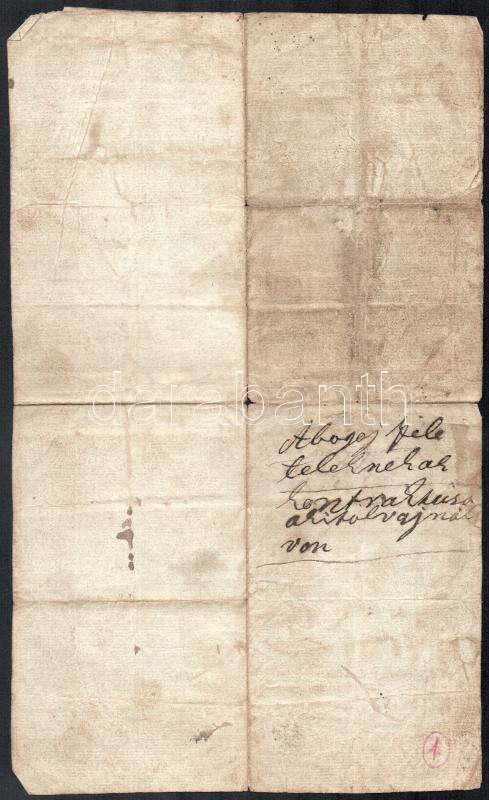 darabanth
Aboges féle
teleknekak
kontraktusa
akitolvajnál
von
1